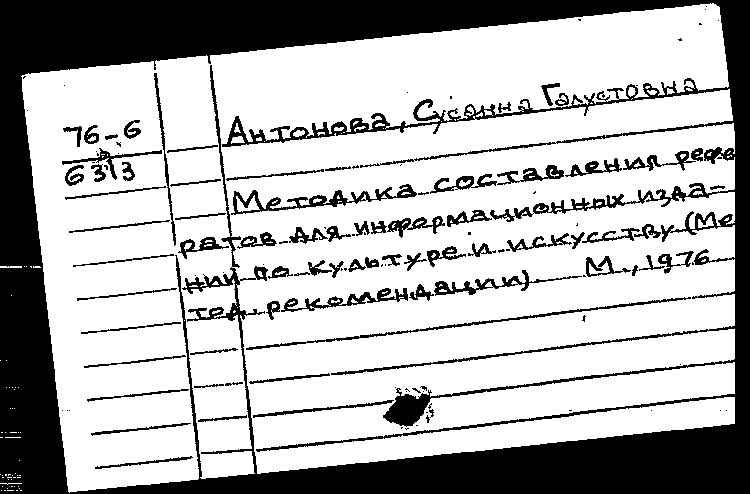 76-6
6313
Антонова, Сусанна Галустовна
Методика составления рефе
ратов для информационных изда-
ний по культуре и искусству (Ме
тод. рекомендации). М., 1976